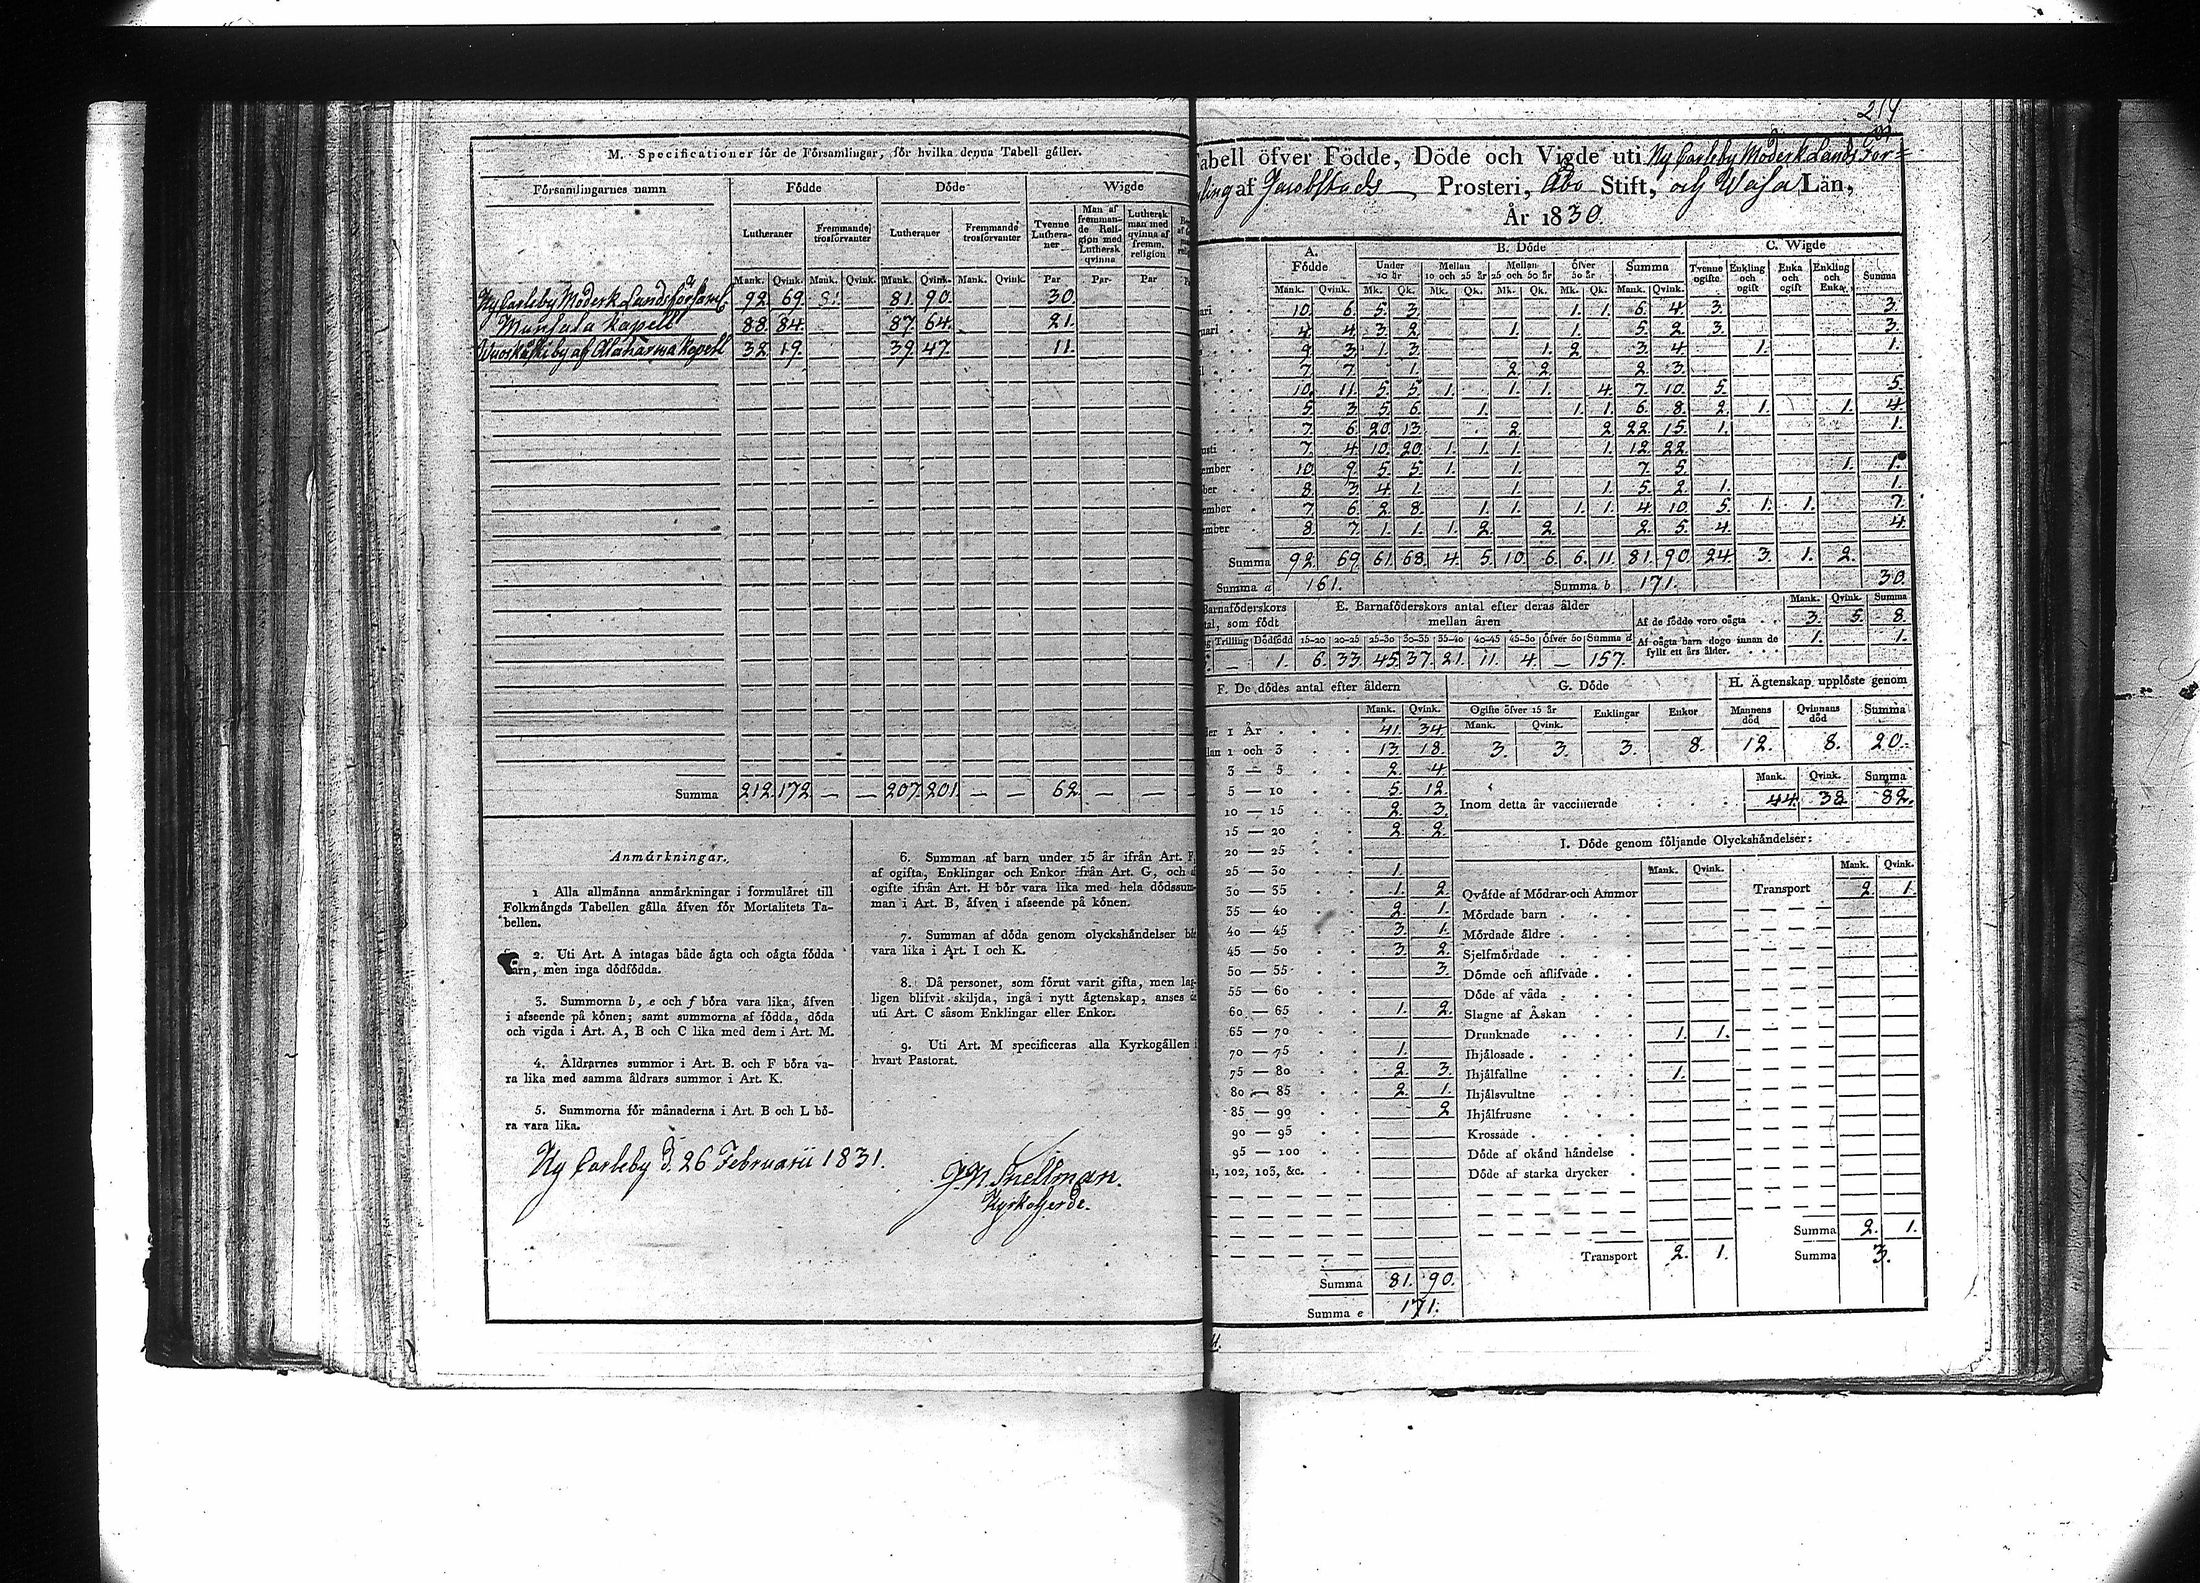 M. Specificationer för de Församlingar, för hvilka denna Tabell gäller.
Församlingarnes namn Födde Döde Wigde
Lutheraner Fremmande trosförvanter Lutheraner Fremmande trosförvanter Tvenne Lutheraner Man af fremmande Religion med Luthersk qvinna Luthersk man med qvinna af fremm. religion
Mank. Qvink. Mank. Qvink. Mank. Qvink. Mank. Qvink. Par Par Par
Ny Carleby Moderk Landsförsaml. 92. 69. 81. 90. 30.
Munsala Kapell 88. 84. 87. 64. 21.
af Alaharma Kapell 32. 19. 39. 47. 11.
Summa 212. 172. — — 207. 201. — — 62. — —
Anmärkningar.
1 Alla allmänna anmärkningar i formuläret till
Folkmängds Tabellen gälla äfven för Mortalitets Ta-
bellen.
2. Uti Art. A intagas både ägta och oägta födda
barn, men inga dödfödda.
3. Summorna b, e och f böra vara lika, äfven
i afseende på könen; samt summorna af födda, döda
och vigda i Art. A, B och C lika med dem i Art. M.
4. Åldrarnes summor i Art. B. och F böra va-
ra lika med samma åldrars summor i Art. K.
5. Summorna för månaderna i Art. B och L bö-
ra vara lika.
6. Summan af barn under 15 år ifrån Art. F,
af ogifta, Enklingar och Enkor ifrån Art. G, och
ogifte ifrån Art. H bör vara lika med hela dödssum-
man i Art. B, äfven i afseende på könen.
7. Summan af döda genom olyckshändelser bör
vara lika i Art. I och K.
8. Då personer, som förut varit gifta, men lag-
ligen blifvit skiljda, ingå i nytt ägtenskap, anses
uti Art. C såsom Enklingar eller Enkor.
9. Uti Art. M specificeras alla Kyrkogällen i
hvart Pastorat.
Ny Carleby d. 26 Februarii 1831.
J. N. Snellman.
Kyrkoherde.
214
abell öfver Födde, Döde och Vigde uti Ny Carleby Moderk Lands För=
ling af Jacobstads Prosteri, Åbo Stift, och Wasa Län,
År 1830.
A. Födde B. Döde C. Wigde
Under 10 år Mellan 10 och 25 år Mellan 25 och 50 år Öfver 50 år Summa Tvenne ogifte Enkling och ogift Enka och ogift Enkling och Enka Summa
Mank. Qvink. Mk. Qk. Mk. Qk. Mk. Qk. Mk. Qk. Mank. Qvink.
ari 10. 6. 5. 3. 1. 1. 6. 4. 3. 3.
uari 4. 4. 3. 2. 1. 1. 5. 2. 3. 3.
9. 3. 1. 3. 1. 2. 3. 4. 1. 1.
7. 7. 1. 2. 2. 2. 3.
10. 11. 5. 5. 1. 1. 1. 4. 7. 10. 5. 5.
5. 3. 5. 6. 1. 1. 1. 6. 8. 2. 1. 1. 4.
7. 6. 20. 13. 2. 2. 22. 15. 1. 1.
usti 7. 4. 10. 20. 1. 1. 1. 1. 12. 22.
ember 10. 9. 5. 5. 1. 1. 7. 5. 1. 1.
ber 8. 3. 4. 1. 1. 1. 5. 2. 1. 1.
ember 7. 6. 2. 8. 1. 1. 1. 1. 4. 10. 5. 1. 1. 7.
ember 8. 7. 1. 1. 1. 2. 2. 2. 5. 4. 4.
Summa 92. 69. 61. 68. 4. 5. 10. 6. 6. 11. 81. 90. 24. 3. 1. 2.
Summa a 161. Summa b 171. 30.
Barnaföderskors
tal, som födt
Trilling Dödfödd
— 1.
E. Barnaföderskors antal efter deras ålder
mellan åren
15-20 20-25 25-30 30-35 35-40 40-45 45-50 Öfver 50 Summa d
6. 33. 45. 37. 21. 11. 4. — 157.
Mank. Qvink. Summa
Af de födde voro oägta 3. 5. 8.
Af oägta barn dogo innan de
fyllt ett års ålder. 1. 1.
F. De dödes antal efter åldern
Mank. Qvink.
er 1 År 41. 34.
lan 1 och 3 13. 18.
3 — 5 2. 4.
5 — 10 5. 12.
10 — 15 2. 3.
15 — 20 2. 2.
20 — 25
25 — 30 1.
30 — 35 1. 2.
35 — 40 2. 1.
40 — 45 3. 1.
45 — 50 3. 2.
50 — 55 3.
55 — 60
60 — 65 1. 2.
65 — 70
70 — 75 1.
75 — 80 2. 3.
80 — 85 2. 1.
85 — 90 2
90 — 95
95 — 100
1, 102, 103, &c.
Summa 81. 90.
Summa e 171.
G. Döde
Ogifte öfver 15 år Enklingar Enkor
Mank. Qvink.
3. 3. 3. 8.
H. Ägtenskap upplöste genom
Mannens död Qvinnans död Summa
12. 8. 20.
Mank. Qvink. Summa
Inom detta år vaccinerade 44. 38. 82.
I. Döde genom följande Olyckshändelser:
Mank. Qvink. Mank. Qvink.
Qväfde af Mödrar och Ammor Transport 2. 1.
Mördade barn
Mördade äldre
Sjelfmördade
Dömde och aflifvade
Döde af våda
Slagne af Åskan
Drunknade 1. 1.
Ihjälosade
Ihjälfallne 1.
Ihjälsvultne
Ihjälfrusne
Krossade
Döde af okänd händelse
Döde af starka drycker
Summa 2. 1.
Transport 2. 1. Summa 3.